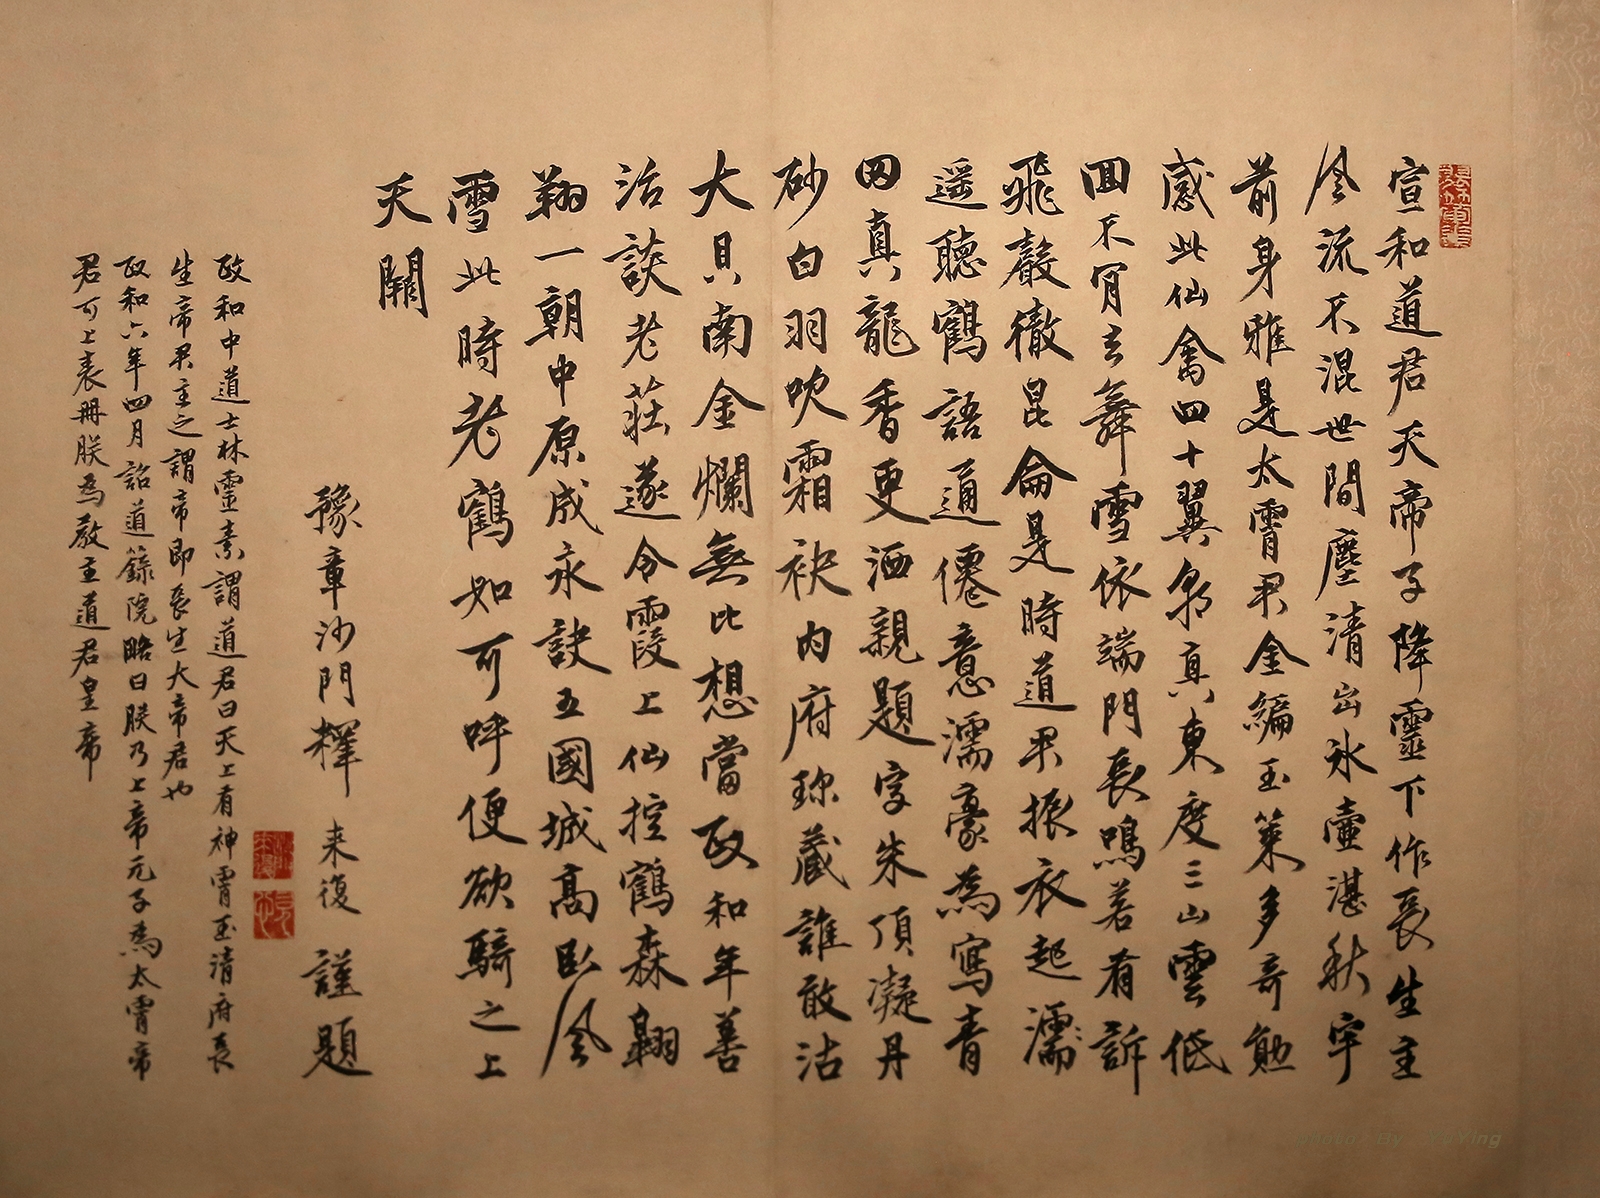 宣和道君天帝子降靈下作長生主
風流不混世間塵清出氷壺湛秋宇
前身雅是太霄君金編玉策多奇勛
感此仙禽四十翼朝真東度三山雲低
回不肎去舞雪依端門長鳴若有訴
飛聲徹昆侖是時道君振衣起濡
遥聽鶴語通僊意濡豪為寫青
田真龍香更洒親題字朱頂凝丹
砂白羽吹霜袂內府珎藏誰敢沽
大貝南金爛無比想當政和年善
治談老莊遂令霞上仙控鶴森翱
翔一朝中原成永訣五國城高卧風
雪此時老鶴如可呼便欲騎之上
天闕
豫章沙門釋来復謹題
政和中道士林靈素謂道君曰天上有神霄玉清府長
生帝君主之謂帝即長生大帝君也
政和六年四月詔道籙院略曰朕乃上帝元子為太霄帝
君可上表冊朕為教主道君皇帝